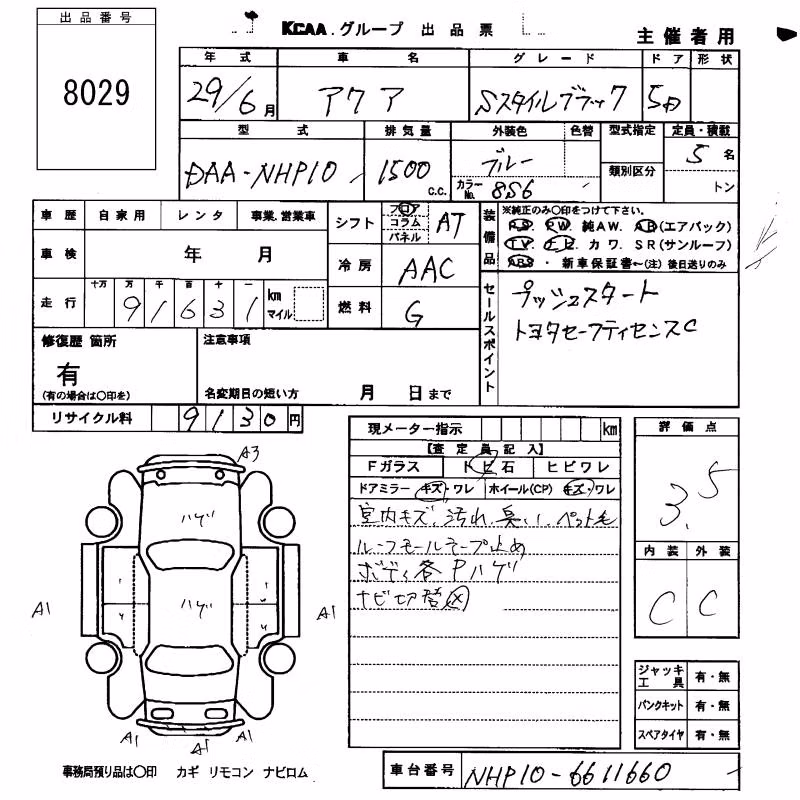 出品番号
8029
KCAA.グループ 出品票
主催者用
年式 車名 グレード ドア 形状
29/6月 アクア Sスタイルブラック 5D
型式 排気量 外装色 色替 型式指定 定員・積載
DAA-NHP10 1500 c.c. ブルー 5名
カラーNo. 8S6 類別区分 トン
車歴 自家用 レンタ 事業.営業車
シフト フロア コラム パネル AT
装備品 ※純正のみ○印をつけて下さい。
P.S. P.W. 純AW. A.B(エアバッグ)
T.V. ナビ カワ. SR(サンルーフ)
ABS ・ 新車保証書←(注)後日送りのみ
車検 年 月
冷房 AAC
走行 十万 万 千 百 十 一
91631 km マイル
燃料 G
セールスポイント
プッシュスタート
トヨタセーフティセンスC
修復歴 箇所
有
(有の場合は○印を)
注意事項
名変期日の短い方 月 日まで
リサイクル料 9130円
現メーター指示 km
【査定員記入】
Fガラス トビ石 ヒビワレ
ドアミラー キズ・ワレ ホイール(CP) キズ・ワレ
室内キズ、汚れ、臭い、ペット毛
ルーフモールテープ止め
ボディ各Pハゲ
評価点
3.5
内装 外装
C C
A3
ハゲ
ハゲ
A1 A1
A1 A1 A1
ジャッキ工具 有・無
パンクキット 有・無
スペアタイヤ 有・無
事務局預り品は○印 カギ リモコン ナビロム
車台番号 NHP10-6611660